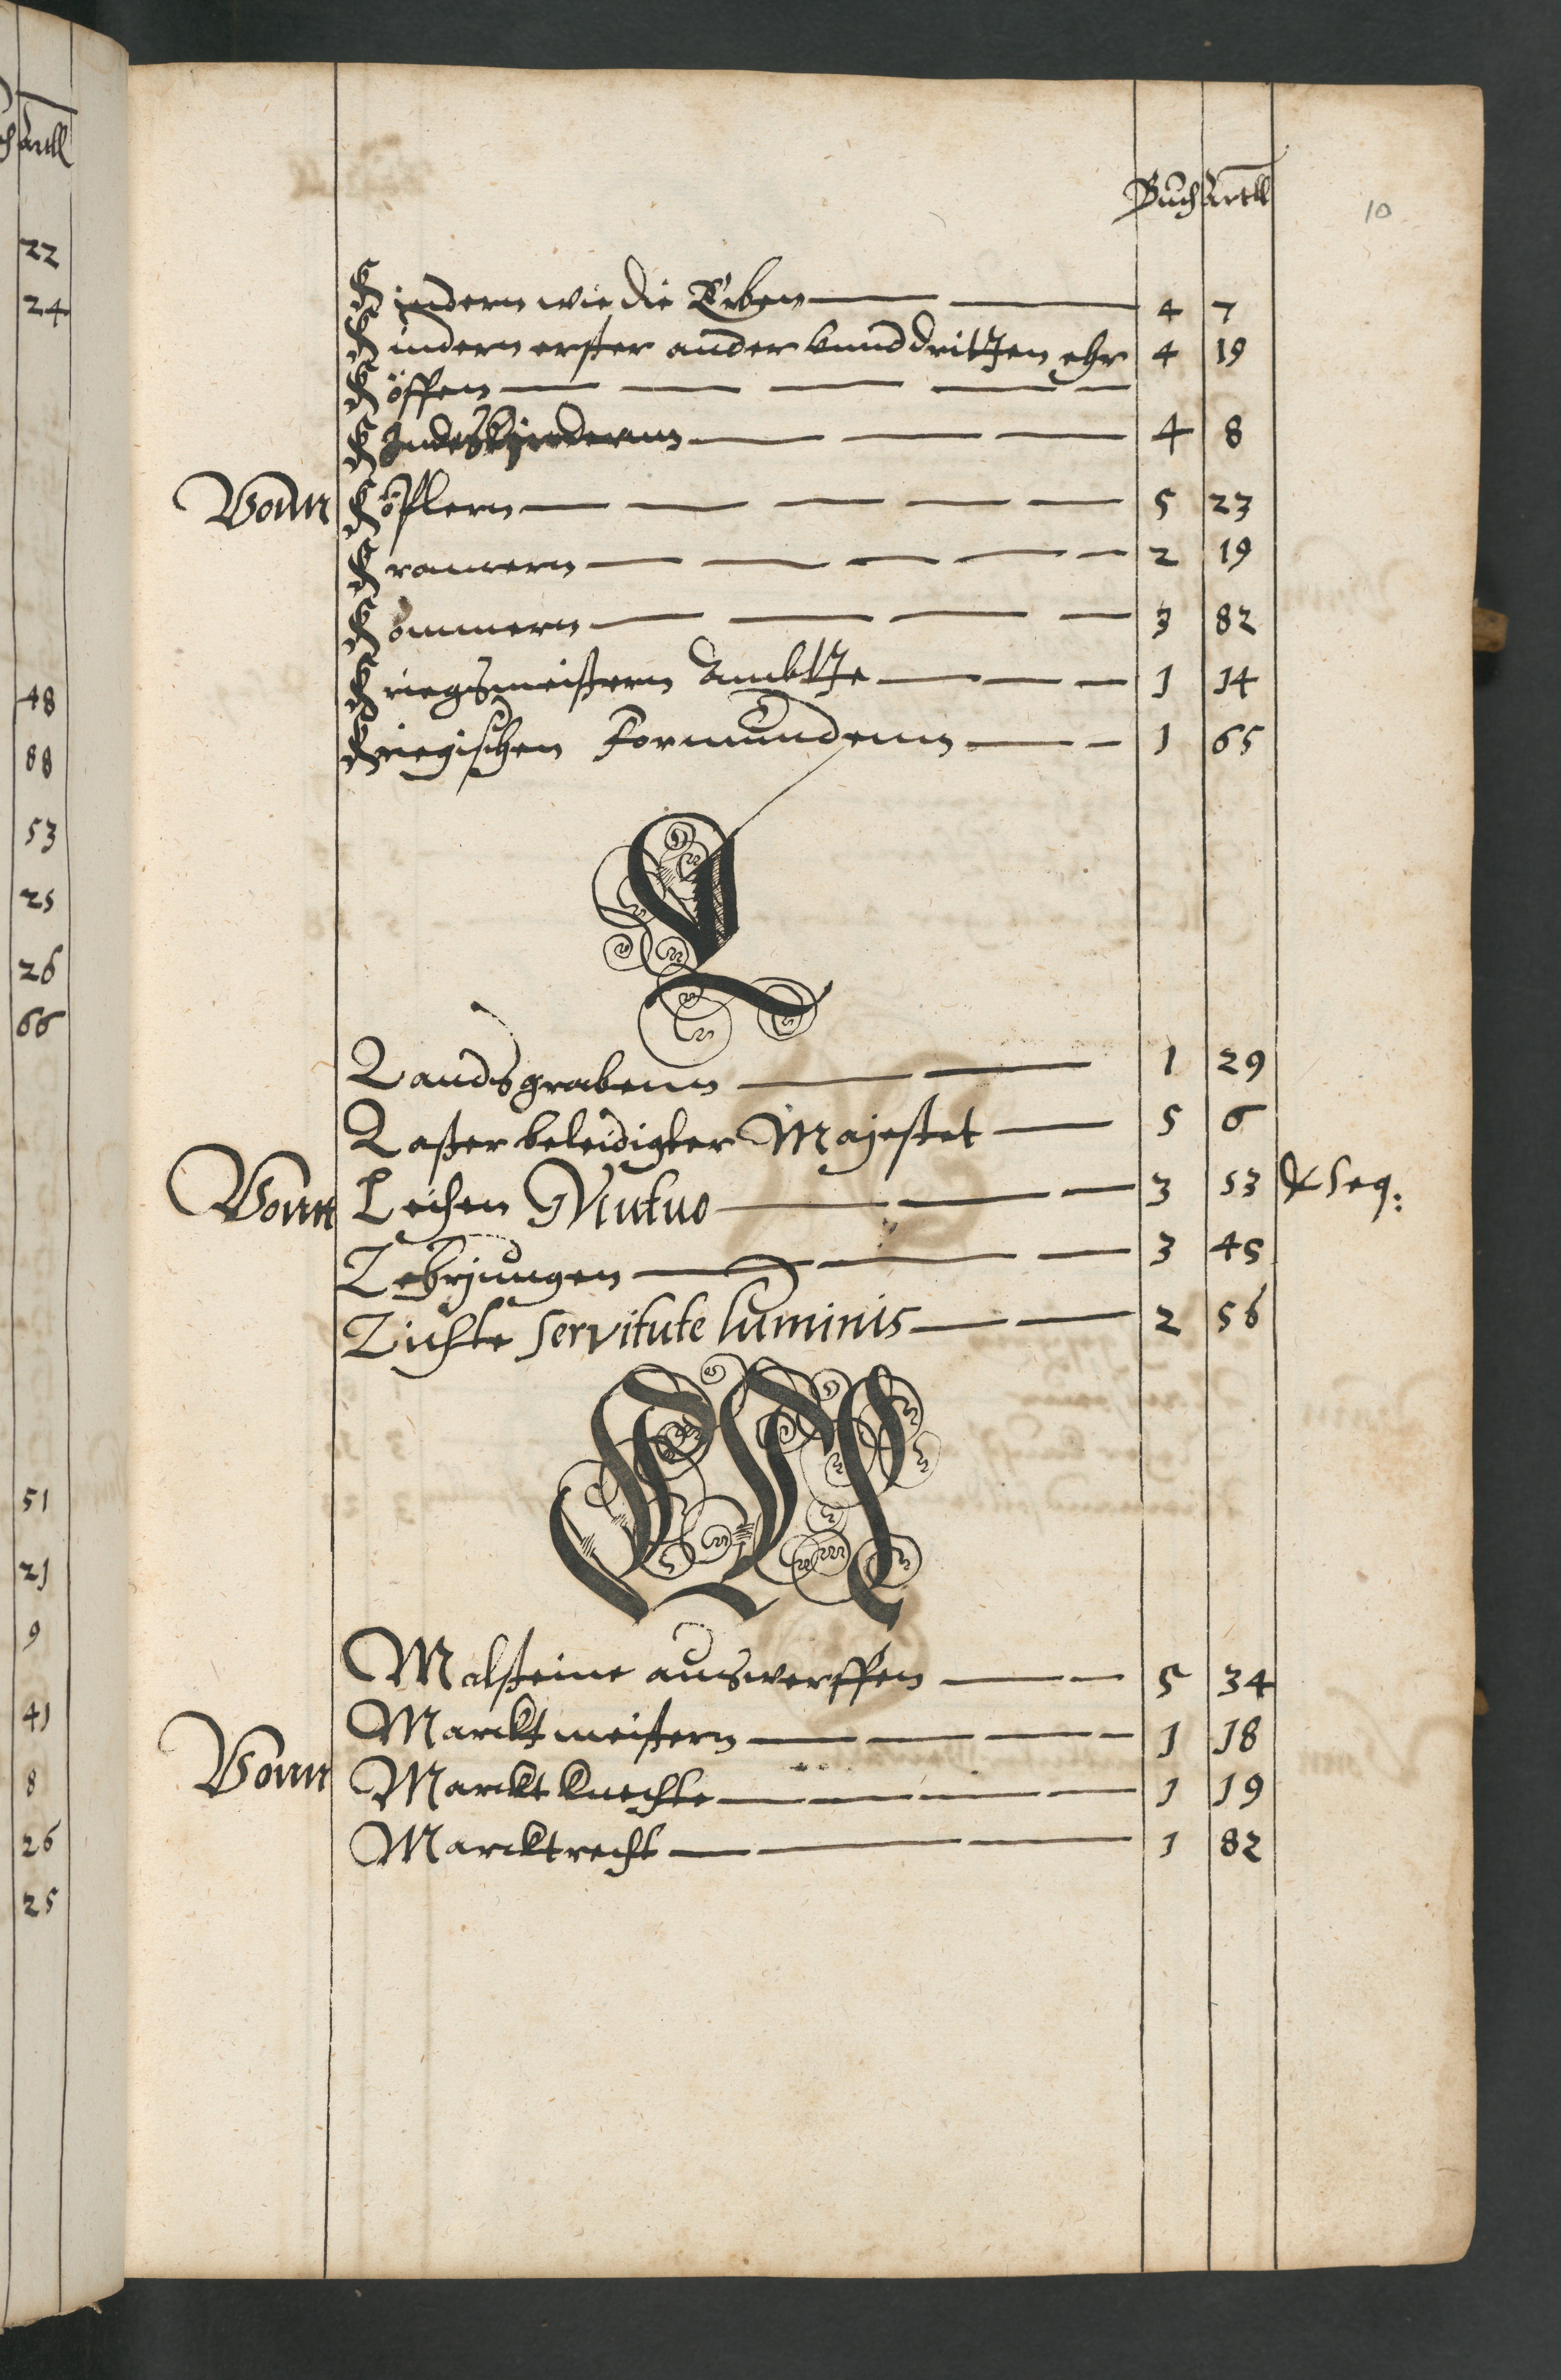 Buch Artll
10
Kindern wie die Erben 4 7
Kindern erster ander vnnd dritten ehe 4 19
Köffen
Kindeskindernn 4 8
Vonn
Köhlern 5 23
Kramern 2 19
Kommern 3 82
Kriegsmeistern Ambtte 1 14
Kriegischen Formundenn 1 65
L
Landsgrabenn 1 29
Laster beleidigter Majestet 5 6
Vonn Leihen Mutuo 3 53 & seq:
Lehrjungen 3 45
Lichte servitute luminis 2 56
M
Malsteine auswerffen 5 34
Marcktmeistern 1 18
Vonn Marckt Knechte 1 19
Marcktrecht 1 82
Artll
22
24
48
88
53
25
26
66
51
21
9
41
8
26
25